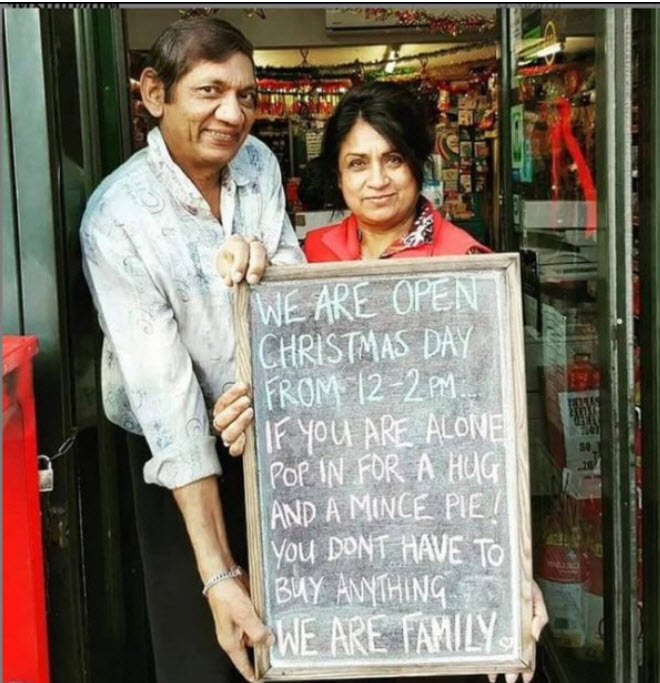 WE ARE OPEN
CHRISTMAS DAY
FROM 12-2 PM...
IF YOU ARE ALONE
POP IN FOR A HUG
AND A MINCE PIE!
YOU DONT HAVE TO
BUY ANYTHING...
WE ARE FAMILY